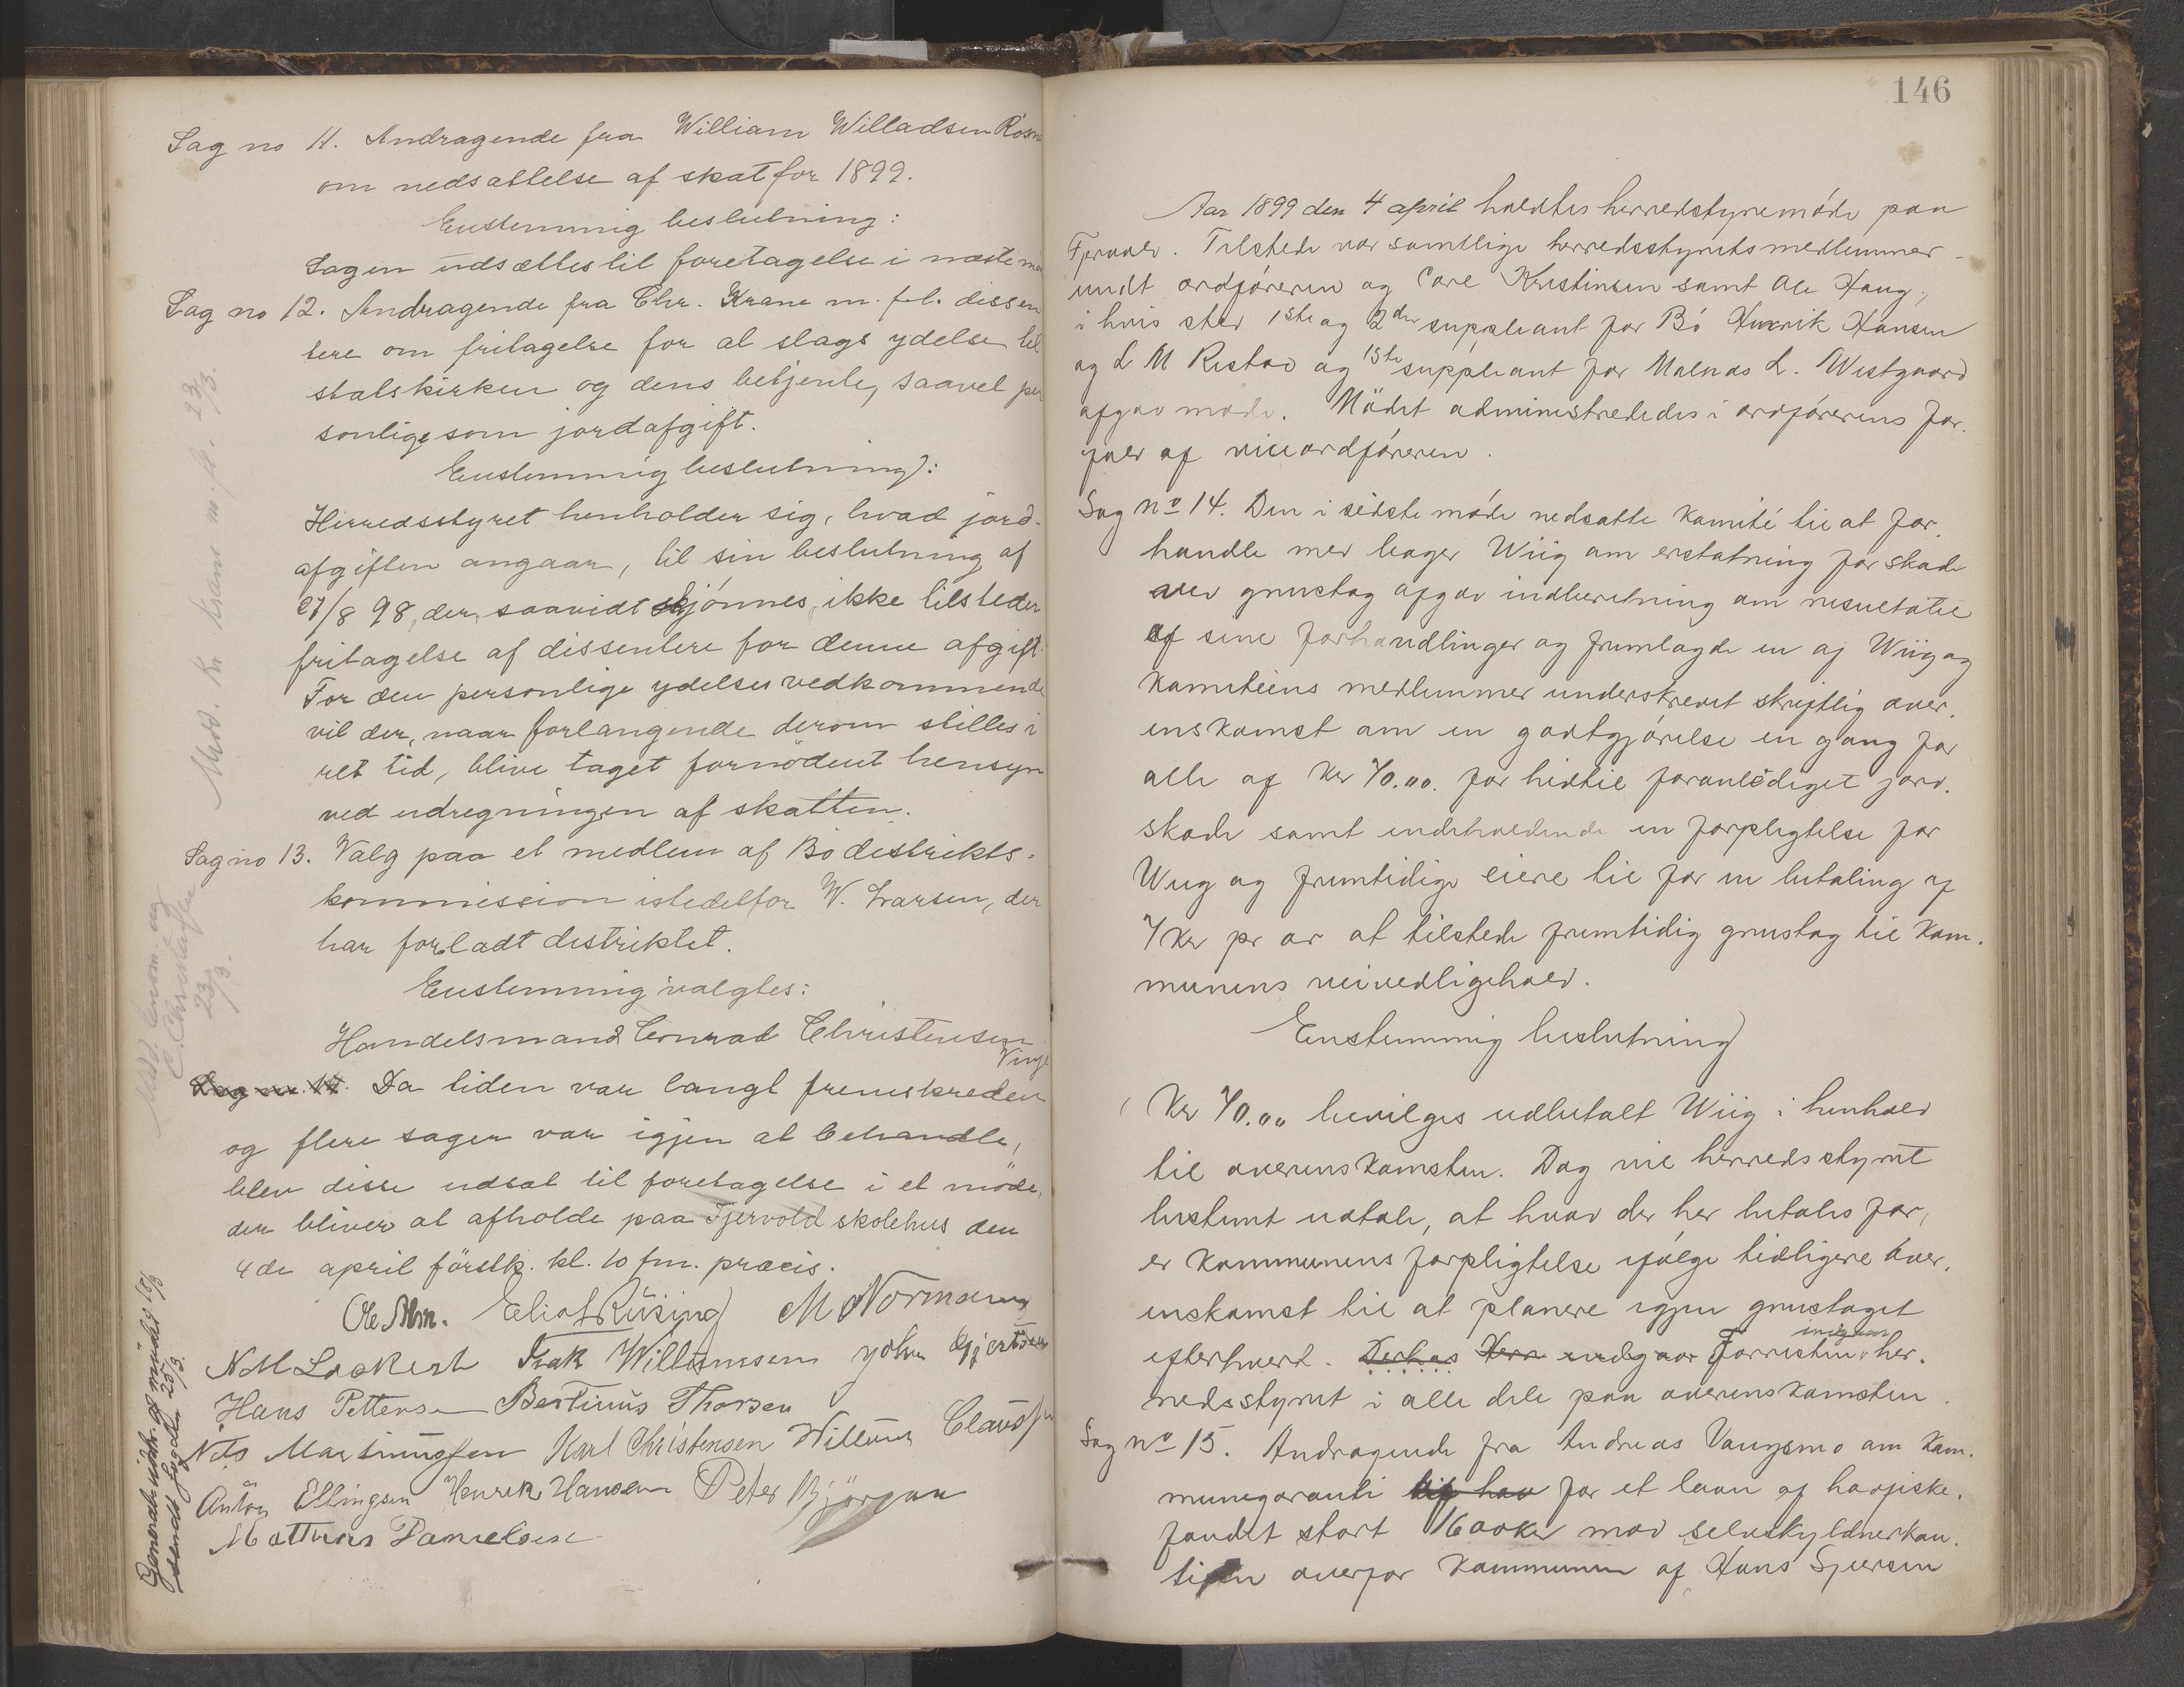 Sag no 11. Andragende fra William Willadsen
om nedsættelse af skat for 1899.
Enstemmig beslutning:
Sagen udsættes til foretagelse i næste
Sag no 12. Andragende fra Chr. Krane m. fl. dissen
tere om fritagelse for al slags ydelse til
statskirken og dens betjente, saavel per
sonlige som jordafgift.
Enstemmig beslutning:
Herredsstyret henholder sig, hvad jord-
afgiften angaar, til sin beslutning af
27/8 98, der, saavidt skjönnes, ikke tilsteder
fritagelse af dissentere for denne afgift.
For den personlige ydelses vedkommende
vil der, naar forlangende derom stilles i
ret tid, blive taget fornödent hensyn
ved udregningen af skatten.
Sag no 13. Valg paa et medlem af Bö distrikts-
kommission istedetfor W. Larsen, der
har forladt distriktet.
Enstemmig valgtes:
Handelsmand Conrad Christensen
Vinje
Sag no. 14. Da tiden var langt fremskreden
og flere sager var igjen at behandle,
blev disse udsat til foretagelse i et möde,
der bliver at afholde paa Fjervold skolehus den
4de april förstk. kl. 10 fm. præcis.
Eliot Rüsing M Normann
N M Lockert Isak Willumsen John Gjertsen
Hans Pettersen Bertinus Thorsen
Nils Martinussen Karl Christensen Willum Clausen
Anton Ellingsen Henrik Hansen Peter Björgan
Mathias Danielsen
Medd. Kr. Krane m. fl. 23/3.
C. Christensen
23/3.
146
Aar 1899 den 4 april holdtes herredstyremöde paa
Fjervold. Tilstede var samtlige herredsstyrets medlemmer
undt ordföreren og Core Kristensen samt Ole Haug,
i hvis sted 1ste og 2den suppleant for Bö Henrik Hansen
og L M Ristad og 1ste suppleant for Malnes L. Westgaard
afgav möde. Mödet administreredes i ordförerens for-
fald af viceordföreren.
Sag no 14. Den i sidste möde nedsatte Komité til at for-
handle med Wiig om erstatning for skade
ved grustag afgav indberetning om resultatet
af sine forhandlinger og fremlagde en af Wiig og
Komiteens medlemmer underskrevet skriftlig over-
enskomst om en godtgjörelse en gang for
alle af Kr 70.00. for hidtil foranlediget jord-
skade samt indeholdende en forpligtelse for
Wiig og fremtidige eiere til for en betaling af
7 Kr pr ar at tilstede fremtidig grustag til Kom-
munens veivedligehold.
Enstemmig beslutning
Kr 70.00 bevilges udbetalt Wiig i henhold
til overenskomsten. Dog vil herredsstyret
bestemt udtale, at hvad der her betales for,
er Kommunens forpligtelse ifölge tidligere over-
enskomst til at planere igjen grustaget
efterhvert. Forresten her-
indgaar
redsstyret i alle dele paa overenskomsten.
Sag no 15. Andragende fra Andreas Vangsmo om Kom-
munegaranti for et laan af havfiske-
fondet stort 1600 Kr mod selvskyldnerkau-
tion overfor Kommunen af Hans Sjursen